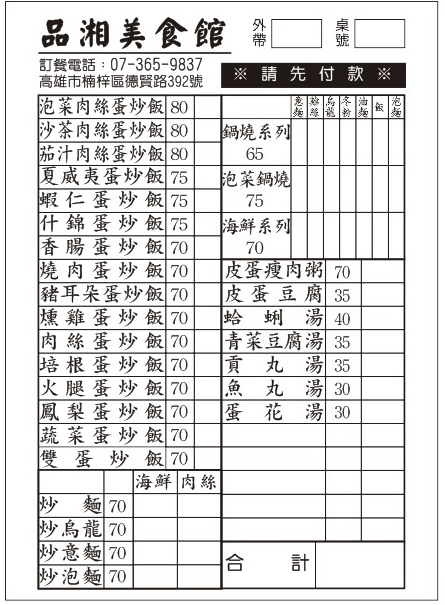 品湘美食館
外帶
桌號
訂餐電話：07-365-9837
高雄市楠梓區德賢路392號
※ 請先付款 ※
泡菜肉絲蛋炒飯 80
沙茶肉絲蛋炒飯 80
茄汁肉絲蛋炒飯 80
夏威夷蛋炒飯 75
蝦仁蛋炒飯 75
什錦蛋炒飯 75
香腸蛋炒飯 70
燒肉蛋炒飯 70
豬耳朵蛋炒飯 70
燻雞蛋炒飯 70
肉絲蛋炒飯 70
培根蛋炒飯 70
火腿蛋炒飯 70
鳳梨蛋炒飯 70
蔬菜蛋炒飯 70
雙蛋炒飯 70
海鮮 肉絲
炒麵 70
炒烏龍 70
炒意麵 70
炒泡麵 70
意麵 雞絲 烏龍 冬粉 油麵 飯 泡麵
鍋燒系列
65
泡菜鍋燒
75
海鮮系列
70
皮蛋瘦肉粥 70
皮蛋豆腐 35
蛤蜊湯 40
青菜豆腐湯 35
貢丸湯 35
魚丸湯 30
蛋花湯 30
合計